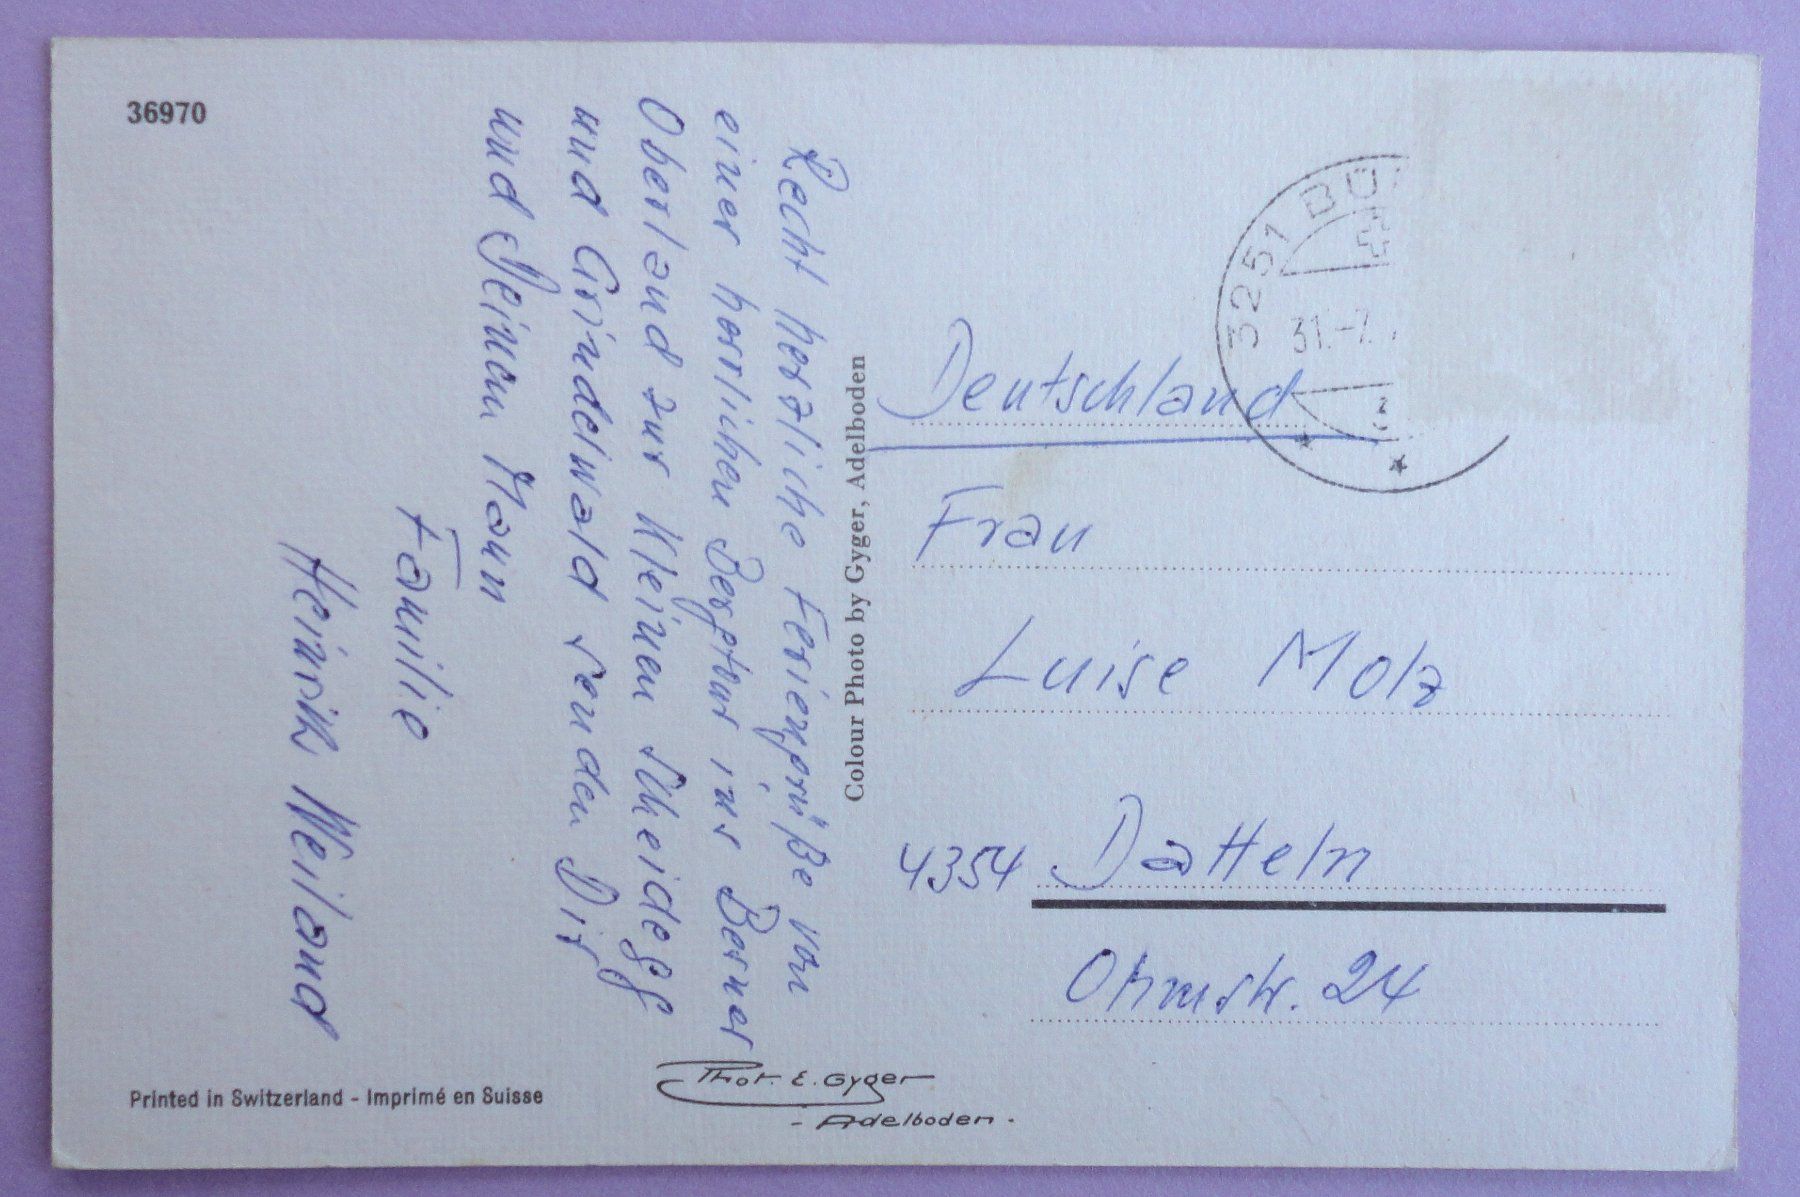 36970
Recht herzliche Feriengrüße von
einer herrlichen Bergtour ins Berner
Oberland zur Kleinen Scheidegg
und Grindelwald senden Dir
und Deinem Mann
Familie
Heinrich Weiland
Colour Photo by Gyger, Adelboden
3251 BÜ
31.-7.
Deutschland
Frau
Luise Molz
4354 Datteln
Ohmstr. 24
Printed in Switzerland - Imprimé en Suisse
Phot. E. Gyger
- Adelboden -